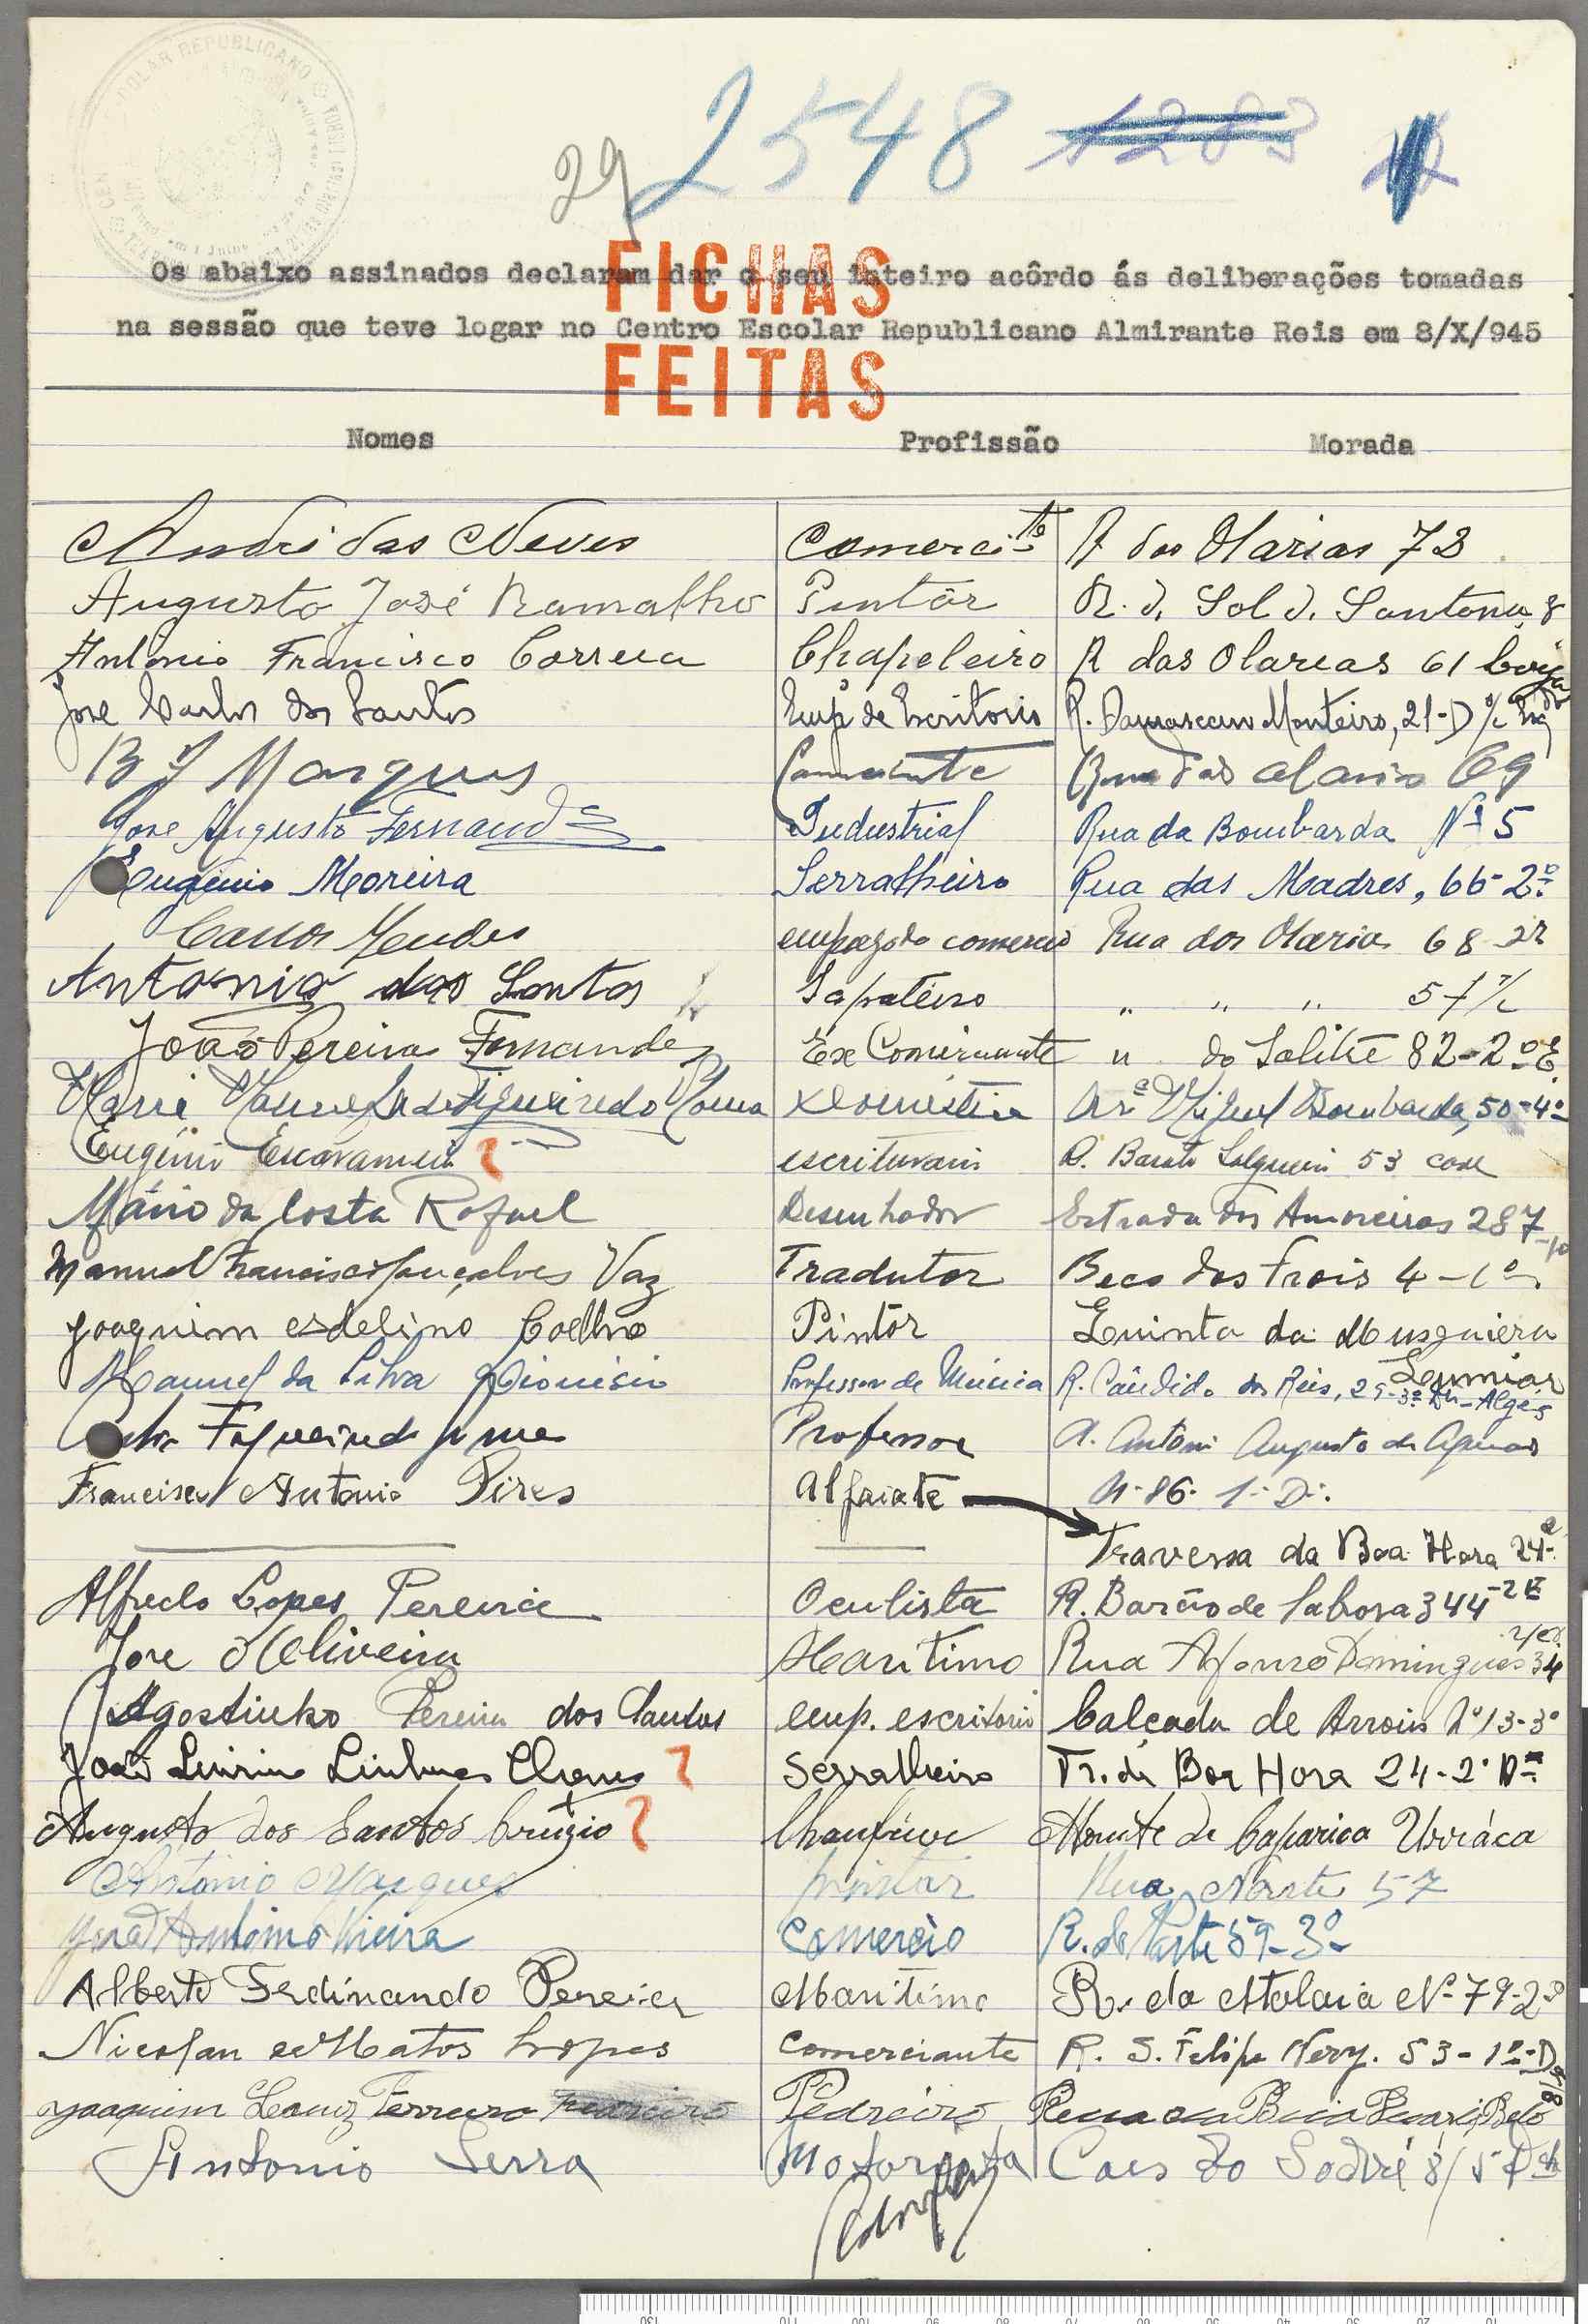 29 2548
FICHAS
Os abaixo assinados declaram dar o seu inteiro acôrdo ás deliberações tomadas
na sessão que teve logar no Centro Escolar Republicano Almirante Reis em 8/X/945
FEITAS
Nomes Profissão Morada
André das Neves Comerci.te R das Olarias 73
Augusto José Ramalho Pintôr R. d. Sol d. Santana 8
Antonio Francisco Correia Chapeleiro R das Olarias 61 Loija
José Carlos dos Santos Emp. de Escritorio R. Damasceno Monteiro, 21-D
B J Marques Comerciante Rua das Olarias 69
Jose Augusto Fernandes Industrial Rua da Bombarda Nº 5
Eugénio Moreira Serralheiro Rua das Madres, 66-2º
Carlos Mendes empregado comercio Rua das Olarias 68
Antonio dos Santos Sapateiro " " " 57
João Pereira Fernandes Ex Comerciante " do Salitre 82-2º E.
Maria de Figueiredo Doméstica Miguel Bombarda, 50-4º
Eugénio escriturario R. Barata Salgueiro 53 cave
Mário da Costa Rafael Desenhador Estrada das Amoreiras 287
Manuel Francisco Gonçalves Vaz Tradutor Beco dos Frois 4-1º
Joaquim Adelino Coelho Pintôr Quinta da Musgueira
Lumiar
Manuel da Silva Dionísio Professor de Musica R. Cândido dos Reis, 29-3º Dto-Algés
Figueiredo Professor A. Antonio Augusto de Aguiar
Francisco Antonio Pires Alfaiate N. 86. 1. D.
Travessa da Boa Hora 24-2
Alfredo Lopes Pereira Oculista R. Barão de Sabrosa 344-2 E
Jose d'Oliveira Maritimo Rua Afonso Domingues 34
Agostinho Pereira dos Santos emp. escritorio Calçada de Arroios Nº 13-3º
João Linhares Serralheiro Tr. da Boa Hora 24-2º D
Augusto dos Santos Chaufeur Monte de Caparica Urráca
António Marques pintor Rua Norte 57
José António Vieira Comercio R. do Norte 59-3º
Alberto Ferdinando Pereira Maritimo R. da Atalaia Nº 79-2º
Nicolau de Matos Lopes Comerciante R. S. Filipe Nery. 53-1º-D
Joaquim Ferreiro Pedreiro
Antonio Serra Motorista Caes do Sodré 8/5